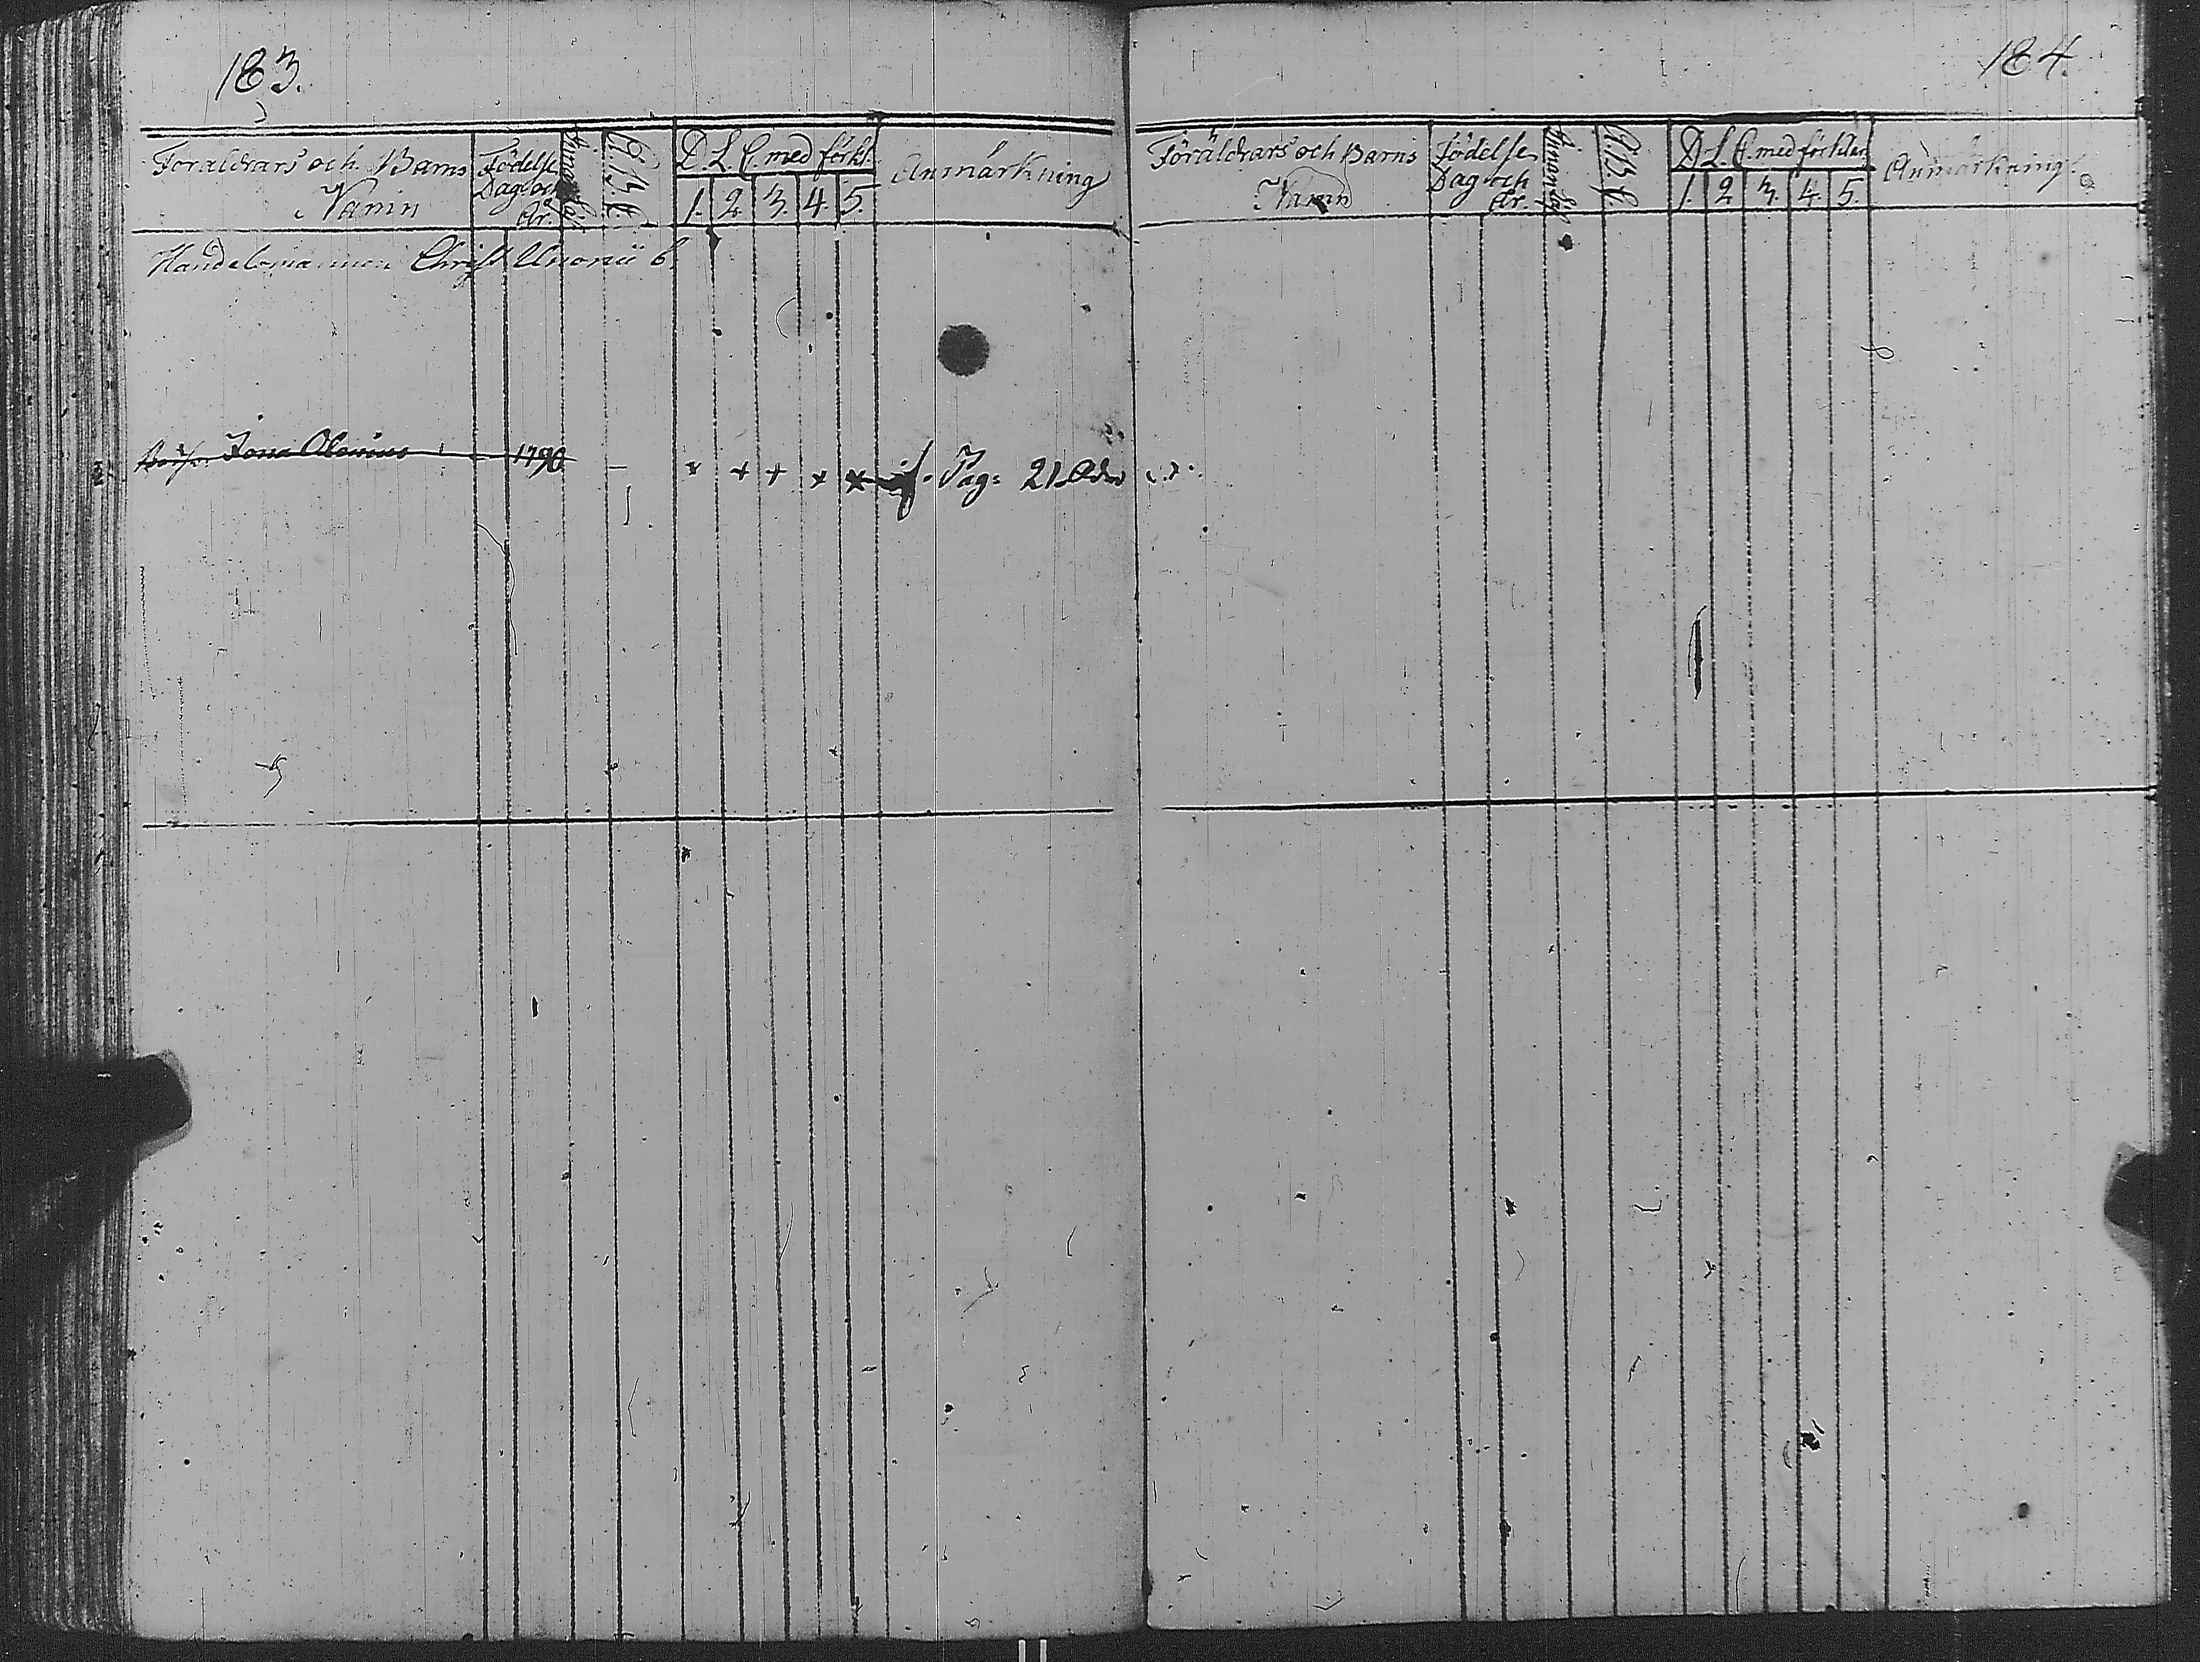 183.
Föräldrars och Barns
Namn
Födelse
Dag och
År.
A.B.b.
D.L.C. med förkl.
1. 2. 3. 4. 5.
Anmärkning
Handelsmannen Christ. Unonii b.
Jona Olonius 1790 – × + + × × Pag: 21
184.
Föräldrars och Barns
Namn
Födelse
Dag och
År.
A.B.b.
D.L.C. med förklar.
1. 2. 3. 4. 5.
Anmärkning.